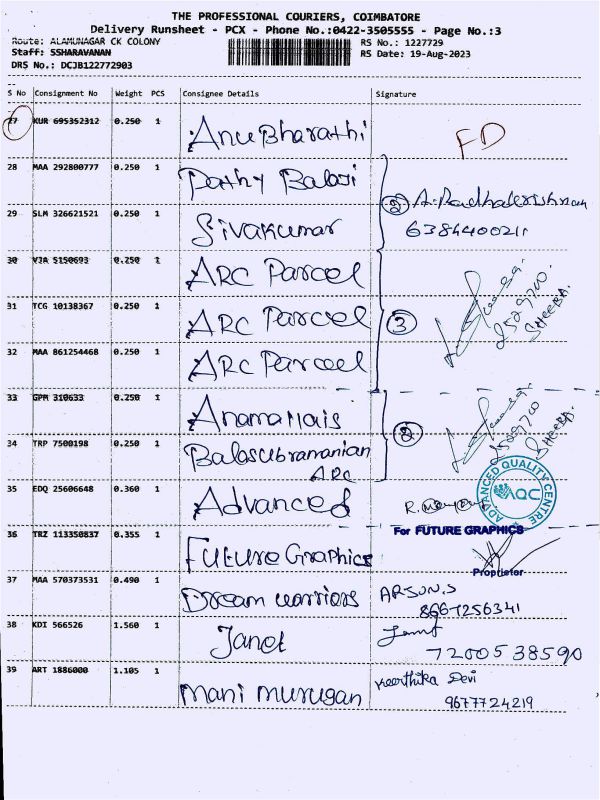 THE PROFESSIONAL COURIERS, COIMBATORE
Delivery Runsheet - PCX - Phone No.:0422-3505555 - Page No.:3
Route: ALAMUNAGAR CK COLONY
RS No.: 1227729
Staff: SSHARAVANAN
RS Date: 19-Aug-2023
DRS No.: DCJB122772903
S No Consignment No Weight PCS Consignee Details Signature
27 KUR 695352312 0.250 1 Anu Bharathi FD
28 MAA 292800777 0.250 1 Pathy Balaji
② A. Radhakrishnan
29 SLM 326621521 0.250 1 Sivakumar 6384400211
30 VJA 5150693 0.250 1 ARC Parcel
31 TCG 10138367 0.250 1 ARC Parcel ③ 2529700 SHEEBA
32 MAA 861254468 0.250 1 ARC Parcel
33 GPM 310633 0.250 1 Anamallais
② 2529700 SHEEBA
34 TRP 7500198 0.250 1 Balasubramanian
ARC
35 EDQ 25606648 0.360 1 Advanced R.
ADVANCED QUALITY CENTRE
AQC
For FUTURE GRAPHICS
36 TRZ 113350837 0.355 1 Future Graphics
Proprietor
37 MAA 570373531 0.490 1 Dream warriors ARSUN.S
8667256341
38 KDI 566526 1.560 1 Janet
7200538590
39 ART 1886000 1.105 1 Mani Murugan Keerthika Devi
9677724219